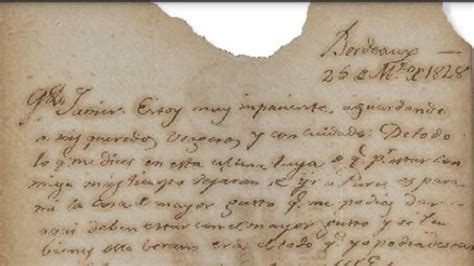 Bordeaux
25 de Mzo de 1828
Qdo Javier Estoy muy inpaciente aguardando
a mis queridos viageros y con cuidado: De todo
lo q. me dices en esta ultima de q. p. estar con
migo mas tiempo dejaran de yr a Paris es para
mi la cosa de mayor gusto q. me podias dar
aqui deben estar con el mayor gusto y si tu
bienes este verano era el todo q. yo podia desear